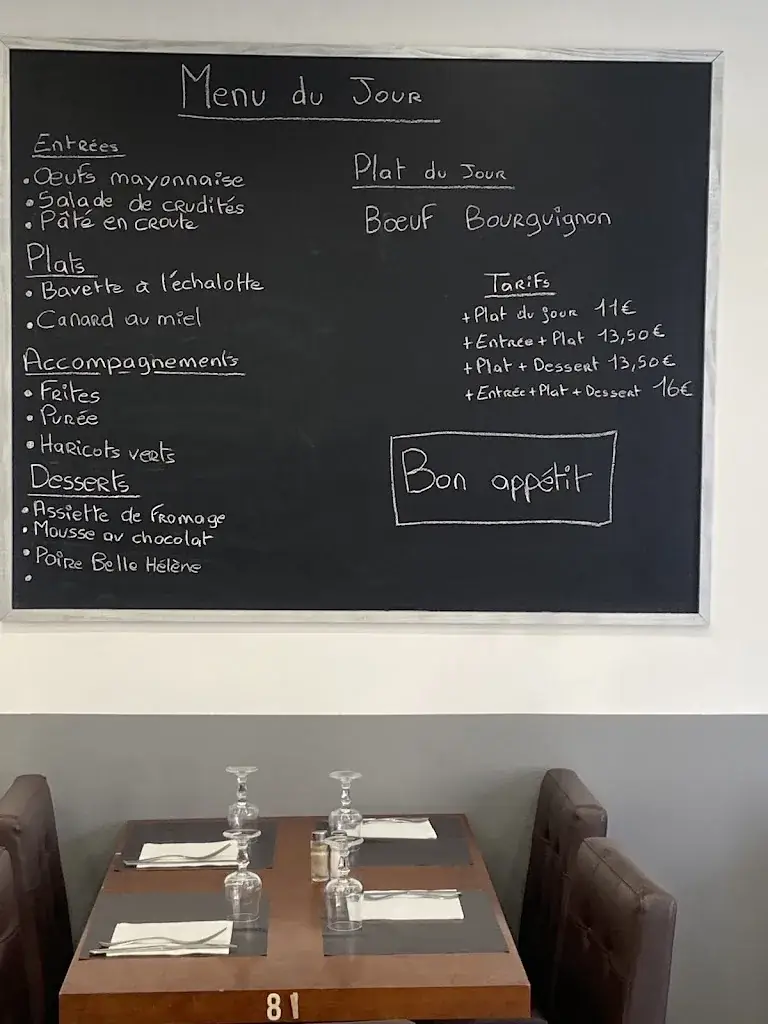 Menu du Jour
Entrées
• Oeufs mayonnaise
• Salade de crudités
• Pâté en croute
Plats
• Bavette à l'échalotte
• Canard au miel
Accompagnements
• Frites
• Purée
• Haricots verts
Desserts
• Assiette de fromage
• Mousse au chocolat
• Poire Belle Hélène
•
Plat du Jour
Bœuf Bourguignon
Tarifs
+ Plat du jour 11€
+ Entrée + Plat 13,50€
+ Plat + Dessert 13,50€
+ Entrée + Plat + Dessert 16€
Bon appétit
81